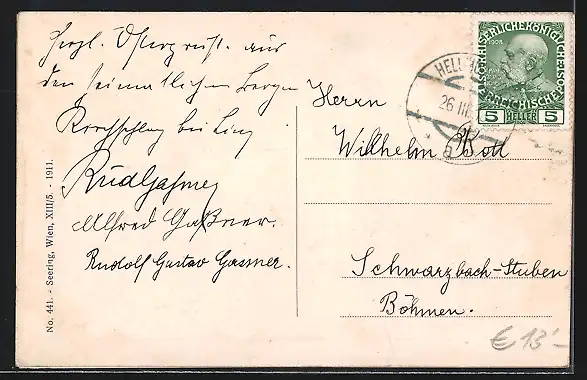 Herzl. Ostergruß. aus
den heimatlichen Bergen
Kirchschlag bei Linz
Rud Gaßner
Alfred Gaßner.
Rudolf Gustav Gassner.
No. 441. - Seering, Wien, XIII/5. - 1911.
KAISERLICHE KÖNIGLICHE
1908
ÖSTERREICHISCHE
5 HELLER 5
26 III
Herrn
Willhelm Bott
Schwarzbach-Stuben
Böhmen.
€ 13'-